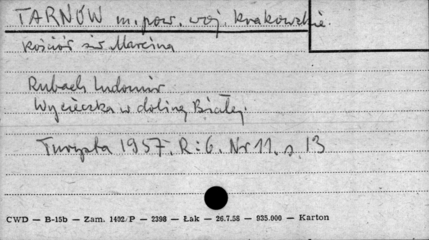 TARNÓW m. pow. woj. krakowskie.
Kościół św. Marcina
Rubach Ludomir
Wycieczka w dolinę Białej.
Turysta 1957. R: 6. Nr 11. s. 13
CWD — B-15b — Zam. 1402/P — 2398 — Łak — 26.7.58 — 935.000 — Karton